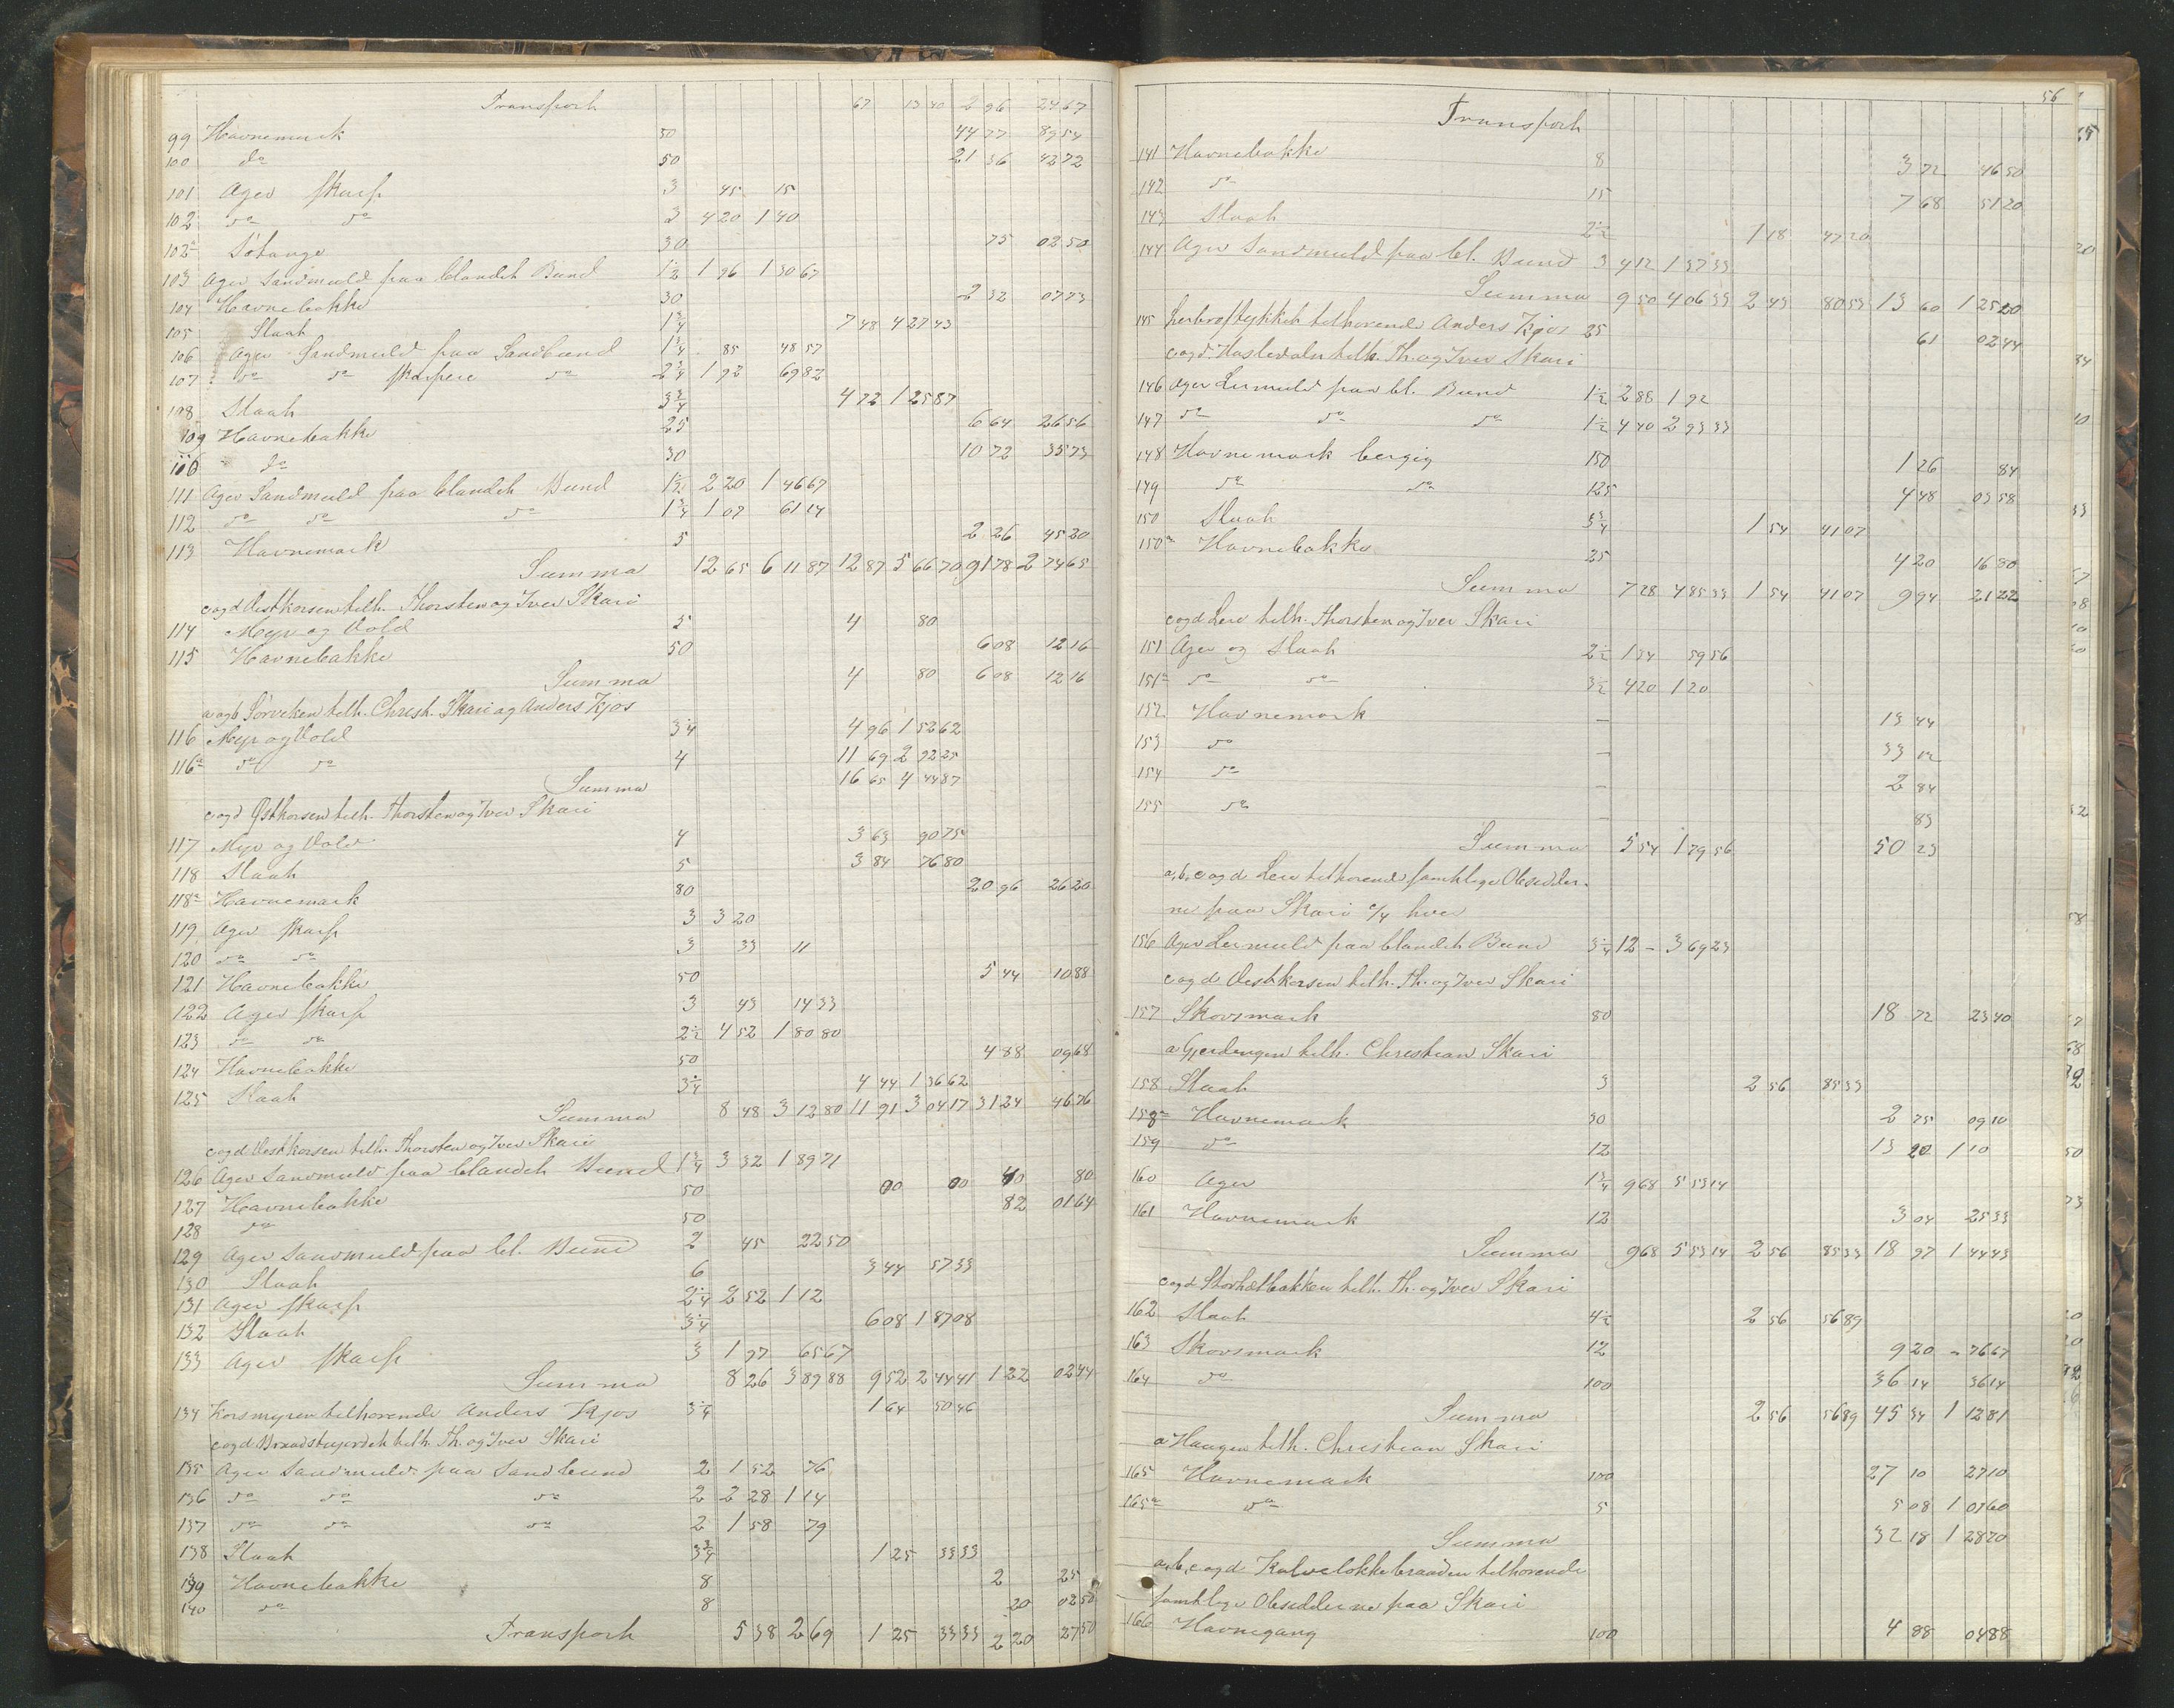 Transport 67 13 40 2 96 24 67
99 Havnemark 50 44 77 89 54
100 do 50 21 36 42 72
101 Ager skarp 3 45 15
102 do do 3 4 20 1 40
102a Søtange 30 75 02 50
103 Ager Sandmuld paa blandet Bund 1½ 1 96 1 30 67
104 Havnebakke 30 2 32 07 73
105 Slaat 1¾ 7 48 4 27 43
106 Ager Sandmuld paa Sandbund 1¾ 85 48 57
107 do do skarpere do 2¾ 1 92 69 82
108 Slaat 3¾ 4 72 1 25 87
109 Havnebakke 25 6 64 26 56
110 do 30 10 72 35 73
111 Ager Sandmuld paa blandet Bund 1½ 2 20 1 46 67
112 do do do 1¾ 1 07 61 14
113 Havnemark 5 2 26 45 20
Summa 12 65 6 11 87 12 87 5 66 70 91 78 2 74 65
c og d Vestkorsen tilh. Thorsten og Iver Skari
114 Myr og Vold 5 4 80
115 Havnebakke 50 6 08 12 16
Summa 4 80 6 08 12 16
a og b Sørveken tilh. Christ. Skari og Anders Kjos
116 Myr og Vold 3¼ 4 96 1 52 62
116a do do 4 11 69 2 92 25
Summa 16 65 4 44 87
c og d Østkorsen tilh. Thorsten og Iver Skari
117 Myr og Vold 4 3 63 90 75
118 Slaat 5 3 84 76 80
118a Havnemark 80 20 96 26 20
119 Ager skarp 3 3 20
120 do do 3 33 11
121 Havnebakke 50 5 44 10 88
122 Ager skarp 3 43 14 33
123 do do 2½ 4 52 1 80 80
124 Havnebakke 50 4 88 09 68
125 Slaat 3¼ 4 44 1 36 62
Summa 8 48 3 12 80 11 91 3 04 17 31 24 46 76
c og d Vestkorsen tilh. Thorsten og Iver Skari
126 Ager Sandmuld paa blandet Bund 1¾ 3 32 1 89 71
127 Havnebakke 50 40 80
128 do 50 82 01 64
129 Ager Sandmuld paa bl. Bund 2 45 22 50
130 Slaat 6 3 44 57 33
131 Ager skarp 2¼ 2 52 1 12
132 Slaat 3¼ 6 08 1 87 08
133 Ager skarp 3 1 97 65 67
Summa 8 26 3 89 88 9 52 2 44 41 1 22 02 44
134 Korsmyren tilhørende Anders Kjos 3¼ 1 64 50 46
c og d Braadstujordet tilh. Th. og Iver Skari
135 Ager Sandmuld paa Sandbund 2 1 52 76
136 do do do 2 2 28 1 14
137 do do do 2 1 58 79
138 Slaat 3¾ 1 25 33 33
139 Havnebakke 8 2 25
140 do 8 20 02 50
Transport 5 38 2 69 1 25 33 33 2 20 27 50
56
Transport
141 Havnebakke 8 3 72 46 50
142 do 15 7 68 51 20
143 Slaat 2½ 1 18 47 20
144 Ager Sandmuld paa bl. Bund 3 4 12 1 37 33
Summa 9 50 4 06 33 2 43 80 53 13 60 1 25 20
145 tilhørende Anders Kjos 25 61 02 44
c og d Hasledalen tilh. Th. og Iver Skari
146 Ager Lermuld paa bl. Bund 1½ 2 88 1 92
147 do do do 1½ 4 40 2 93 33
148 Havnemark bergig 150 1 26 84
149 do do 125 4 48 03 58
150 Slaat 3¾ 1 54 41 07
150a Havnebakke 25 4 20 16 80
Summa 7 28 4 85 33 1 54 41 07 9 94 21 22
c og d Lere tilh. Thorsten og Iver Skari
151 Ager og Slaat 2¼ 1 34 59 56
151a do do 3½ 4 20 1 20
152 Havnemark – 13 44
153 do – 33 02
154 do – 2 84
155 do – 83
Summa 5 54 1 79 56 50 23
a, b, c og d Lere tilhørende samtlige Obsidder-
ne paa Skari ¼ hver
156 Ager Lermuld paa blandet Bund 3¼ 12 – 3 69 23
c og d Vestkorsen tilh. Th. og Iver Skari
157 Skovsmark 80 18 72 23 40
a Gjerdingen tilh. Christian Skari
158 Slaat 3 2 56 85 33
158a Havnemark 30 2 75 09 10
159 do 12 13 20 1 10
160 Ager 1¾ 9 68 5 53 14
161 Havnemark 12 3 04 25 33
Summa 9 68 5 53 14 2 56 85 33 18 97 1 44 43
c og d Storhætbakken tilh. Th. og Iver Skari
162 Slaat 4½ 2 56 56 89
163 Skovsmark 12 9 20 76 67
164 do 100 36 14 36 14
Summa 2 56 56 89 45 34 1 12 81
a Haugen tilh. Christian Skari
165 Havnemark 100 27 10 27 10
165a do 5 5 08 1 01 60
Summa 32 18 1 28 70
a, b, c og d Kalvelokkebraaden tilhørende
samtlige Obsidderne paa Skari
166 Havnegang 100 4 88 04 88